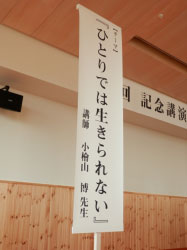 【テーマ】
『ひとりでは生きられない』
講師 小檜山 博 先生
回 記念講演